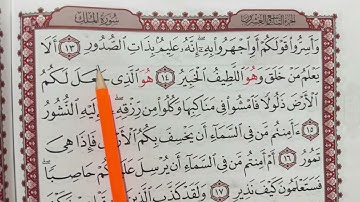 سورة الملك
وَأَسِرُّوا۟ قَوْلَكُمْ أَوِ ٱجْهَرُوا۟ بِهِۦٓ ۖ إِنَّهُۥ عَلِيمٌۢ بِذَاتِ ٱلصُّدُورِ ١٣ أَلَا
يَعْلَمُ مَنْ خَلَقَ وَهُوَ ٱللَّطِيفُ ٱلْخَبِيرُ ١٤ هُوَ ٱلَّذِى لَكُمُ
ٱلْأَرْضَ ذَلُولًا فَٱمْشُوا۟ فِى مَنَاكِبِهَا وَكُلُوا۟ مِن رِّزْقِهِۦ ۖ وَإِلَيْهِ ٱلنُّشُورُ
١٥ ءَأَمِنتُم مَّن فِى ٱلسَّمَآءِ أَن يَخْسِفَ بِكُمُ ٱلْأَرْضَ فَإِذَا هِىَ
تَمُورُ ١٦ أَمْ أَمِنتُم مَّن فِى ٱلسَّمَآءِ أَن يُرْسِلَ عَلَيْكُمْ حَاصِبًا ۖ
فَسَتَعْلَمُونَ كَيْفَ نَذِيرِ ١٧ وَلَقَدْ كَذَّبَ ٱلَّذِينَ